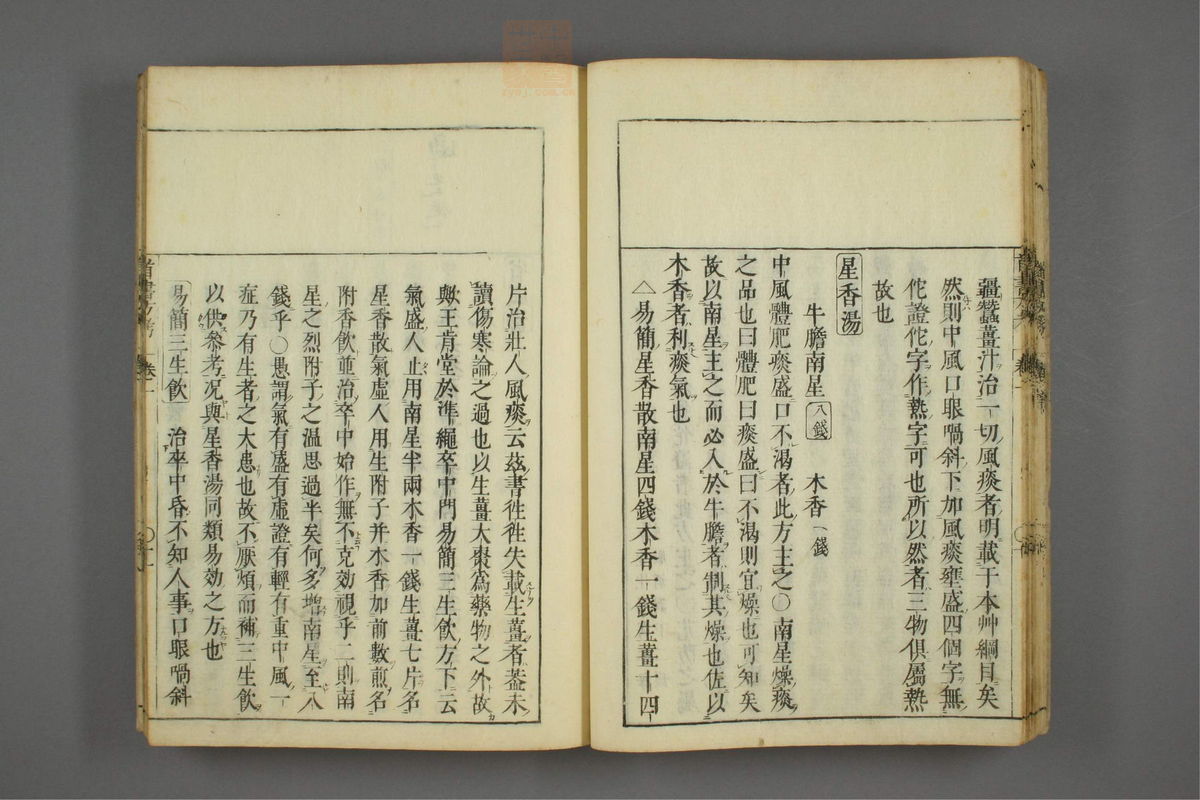 疆蠶薑汁治一切風痰者明載于本艸綱目矣
然則中風口眼喎斜下加風痰壅盛四個字無
佗證佗字作熱字可也所以然者三物俱屬熱
故也
星香湯
牛膽南星 八錢 木香 一錢
中風體肥痰盛口不渴者此方主之〇南星燥痰
之品也曰體肥曰痰盛曰不渴則宜燥也可知矣
故以南星主之而必入於牛膽者制其燥也佐以
木香者利痰氣也
△易簡星香散南星四錢木香一錢生薑十四
片治壯人風痰云茲書徃徃失載生薑者葢未
讀傷寒論之過也以生薑大棗爲藥物之外故
歟王肯堂於準繩卒中門易簡三生飲方下云
氣盛人止用南星半兩木香一錢生薑七片名
星香散氣虛人用生附子并木香加前數煎名
附香飲並治卒中始作無不克効視乎二則南
星之烈附子之温思過半矣何多增南星至八
錢乎〇愚謂氣有盛有虛證有輕有重中風一
症乃有生者之大患也故不厭煩而補三生飲
以供參考况與星香湯同類易効之方也
易簡三生飲 治卒中昏不知人事口眼喎斜
卷一